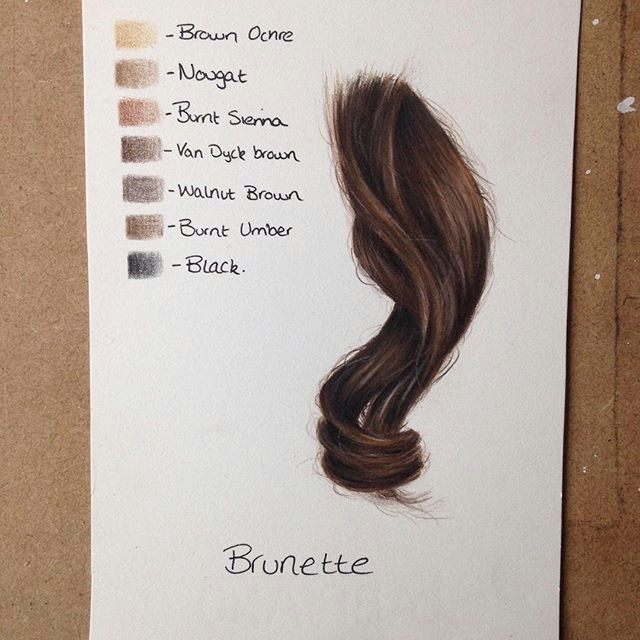 - Brown Ochre
- Nougat
- Burnt Sienna
- Van Dyck brown
- Walnut Brown
- Burnt Umber
- Black.
Brunette